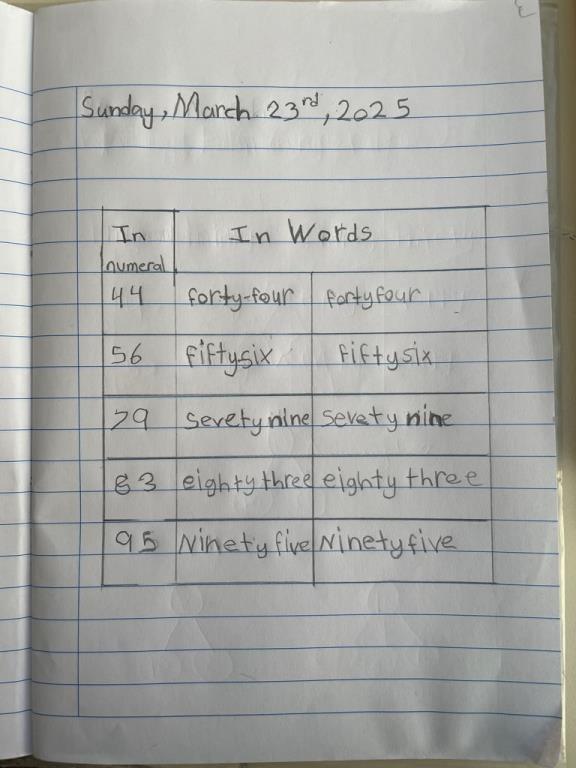 Sunday, March 23rd, 2025
In numeral In Words
44 forty-four fortyfour
56 fiftysix fiftysix
79 sevety nine sevety nine
83 eighty three eighty three
95 Ninety five Ninety five